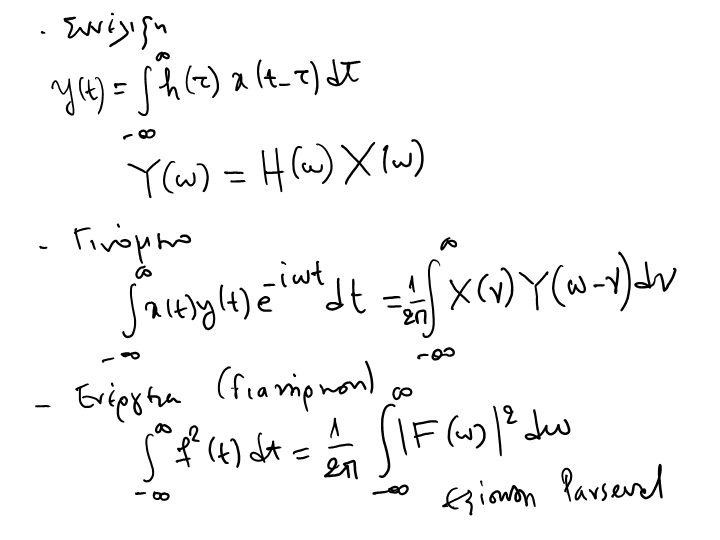 · Συνέλιξη
y(t) = ∫_{-∞}^{∞} h(τ) x(t-τ) dτ
Y(ω) = H(ω) X(ω)
- Γινόμενο
∫_{-∞}^{∞} x(t)y(t) e^{-iωt} dt = 1/2π ∫_{-∞}^{∞} X(ν) Y(ω-ν) dν
- Ενέργεια (διατήρηση)
∫_{-∞}^{∞} f²(t) dt = 1/2π ∫_{-∞}^{∞} |F(ω)|² dω
εξίσωση Parseval